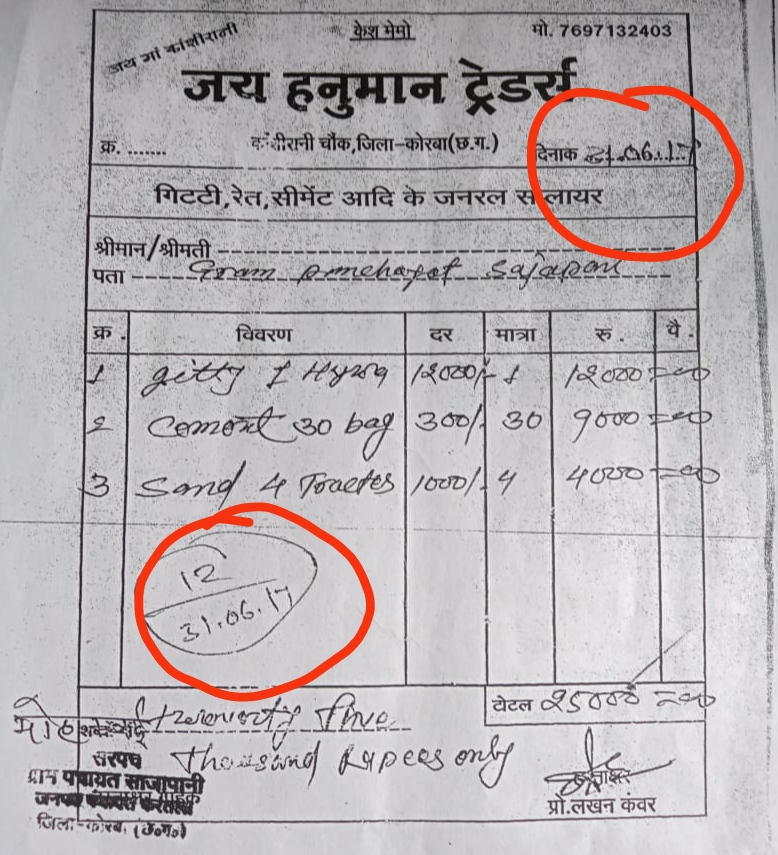 जय मां कांशीरानी
केश मेमो
मो. 7697132403
जय हनुमान ट्रेडर्स
क्र. .......
कांशीरानी चौक,जिला-कोरबा(छ.ग.)
दिनाक 31.06.17
गिटटी,रेत,सीमेंट आदि के जनरल सप्लायर
श्रीमान/श्रीमती
पता Gram Panchayat Sajapani
क्र. विवरण दर मात्रा रु. पै.
1 gitty 1 Hyva 12000/- 1 12000=00
2 Cement 30 bag 300/- 30 9000=00
3 Sand 4 1000/- 4 4000=00
12
31.06.17
टोटल 25000=00
five
Thousand Rupees only
सरपंच
ग्राम पंचायत साजापानी
जिला-कोरबा (छ.ग.)
प्रो.लखन कंवर